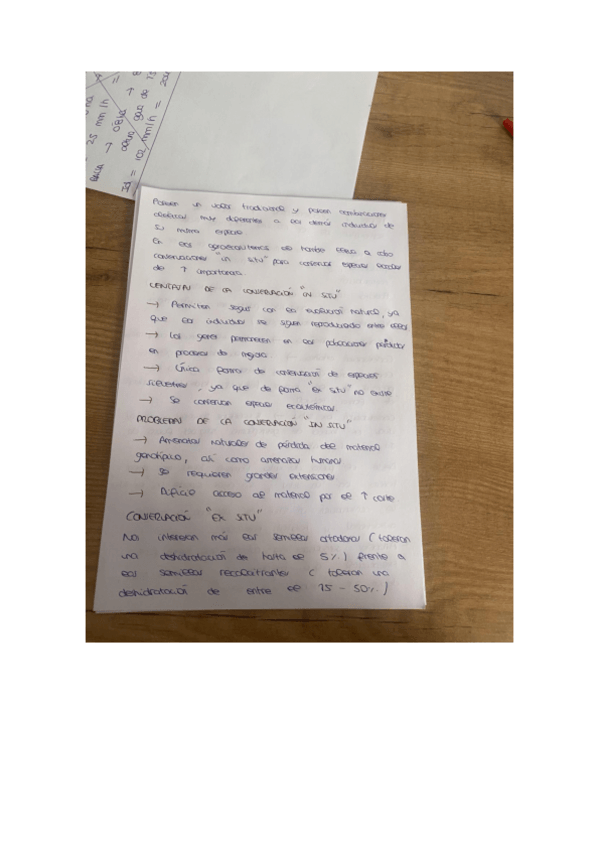 Poseen un valor tradicional y poseen
muy diferentes a los demás individuos de
su misma especie
En los agroecosistemas se también lleva a cabo
conservaciones "in situ" para conservar especies
de ↑ importancia.
VENTAJAS DE LA CONSERVACIÓN "IN SITU"
→ Permiten seguir con la evolución natural, ya
que los individuos se siguen reproduciendo entre ellos
→ Los genes permanecen en las poblaciones perdidos
en procesos de mejora
→ Única forma de conservación de especies
silvestres, ya que de forma "ex situ" no existe
→ Se conservan especies ecosistemas
PROBLEMAS DE LA CONSERVACIÓN "IN SITU"
→ Amenazas naturales de pérdida del material
genotípico, así como amenazas humanas
→ Se requieren grandes extensiones
→ Difícil acceso al material por el ↑ coste
CONSERVACIÓN "EX SITU"
Nos interesan más las semillas ortodoxas (toleran
una deshidratación de hasta el 5%) frente a
las semillas recalcitrantes (toleran una
deshidratación de entre el 25 - 50%)
25 mm/h
102 mm/h =